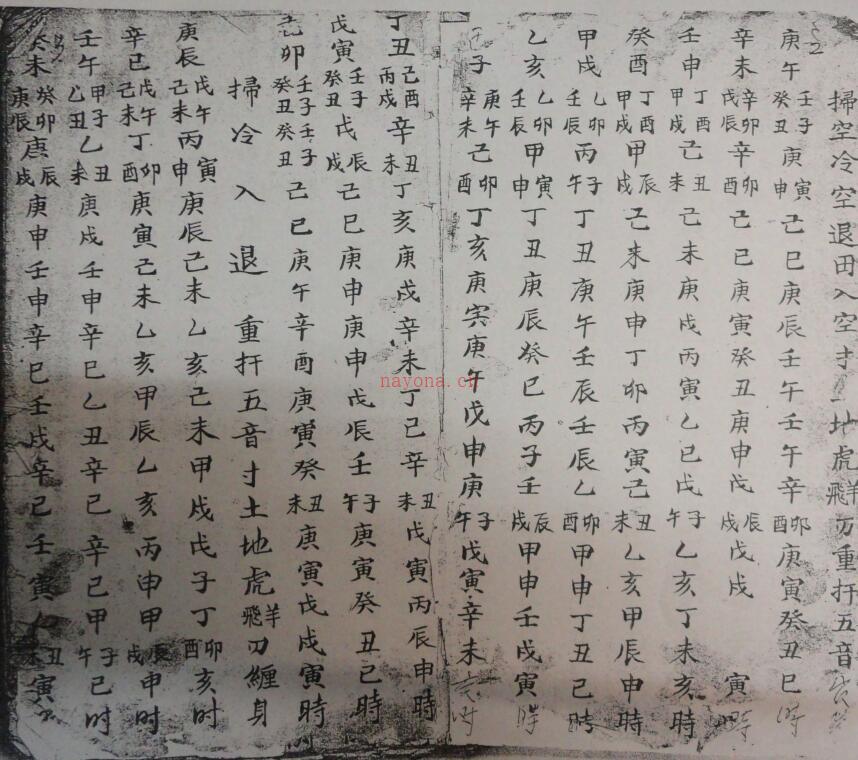 掃空冷空退田入空寸地虎飛羊刃重扦五音
庚午壬子癸丑庚寅申己巳庚辰壬午壬午辛卯酉庚寅癸丑巳時
辛未辛卯戊辰辛卯酉己巳庚寅癸丑庚申戊辰戌戊戌寅時
壬申丁酉甲戌己丑未己未庚戌丙寅乙巳戊子午乙亥丁未亥時
癸酉丁酉甲戌甲辰戌己未庚申丁卯丙寅己丑未乙亥甲辰申時
甲戌乙卯壬辰丙子午丁丑庚午壬辰壬辰乙卯酉甲申丁丑巳時
乙亥乙卯壬辰甲寅申丁丑庚辰癸巳丙子壬辰戌甲申壬戌寅時
子庚午辛未己卯酉丁亥庚寅庚午戊申庚子午戊寅辛未亥时
丁丑己酉丙戌辛丑未丁亥庚戌辛未丁已辛丑未戊寅丙辰申時
戊寅壬子癸丑戊辰戌己巳庚申庚申戊辰壬子午庚寅癸丑巳時
己卯壬子癸丑壬子癸丑己巳庚午辛酉庚寅癸丑未庚寅戊戌寅時
掃冷入退重扦五音寸土地虎飛羊刃纏身
庚辰戊午己未丙寅申庚辰己未乙亥己未甲戌戊子丁卯酉亥时
辛巳戊午己未丁卯酉庚寅己未乙亥甲辰乙亥丙申甲辰戌申时
壬午甲子乙丑乙丑未庚戌壬申辛巳乙丑辛巳辛巳甲子午巳时
癸未癸卯庚辰庚辰戌庚申壬申辛巳壬戌辛巳壬寅乙丑未寅
nayona.cn